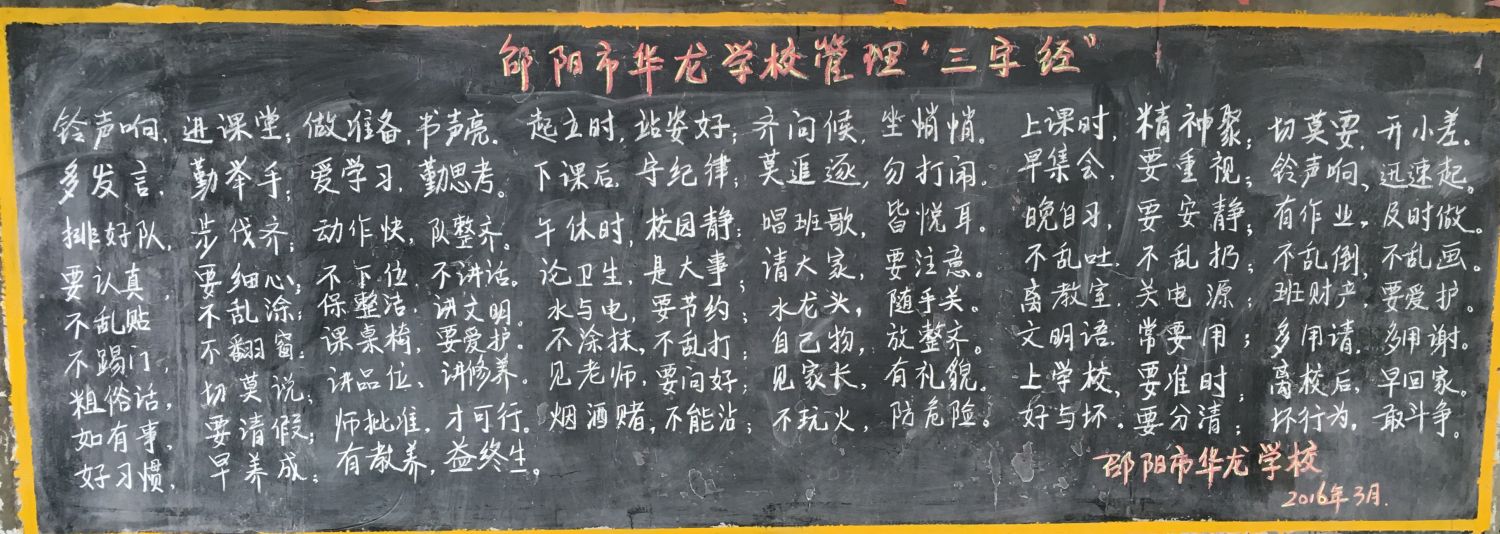 邵阳市华龙学校管理“三字经”
铃声响,进课堂;做准备,书声亮。起立时,站姿好;齐问候,坐悄悄。上课时,精神聚;切莫要,开小差。
多发言,勤举手;爱学习,勤思考。下课后,守纪律;莫追逐,勿打闹。早集会,要重视;铃声响、迅速起。
排好队,步伐齐;动作快,队整齐。午休时,校园静;唱班歌,皆悦耳。晚自习,要安静;有作业,及时做。
要认真,要细心;不下位,不讲话。论卫生,是大事;请大家,要注意。不乱吐,不乱扔;不乱倒,不乱画。
不乱贴 不乱涂;保整洁,讲文明。水与电,要节约;水龙头,随手关。离教室,关电源;班财产,要爱护。
不踢门,不翻窗;课桌椅,要爱护。不涂抹,不乱打;自己物,放整齐。文明语,常要用;多用请,多用谢。
粗俗话,切莫说;讲品位、讲修养。见老师,要问好;见家长,有礼貌。上学校,要准时;离校后,早回家。
如有事,要请假;师批准,才可行。烟酒赌,不能沾;不玩火,防危险。好与坏,要分清;坏行为,敢斗争。
好习惯,早养成;有教养,益终生。
邵阳市华龙学校
2016年3月.